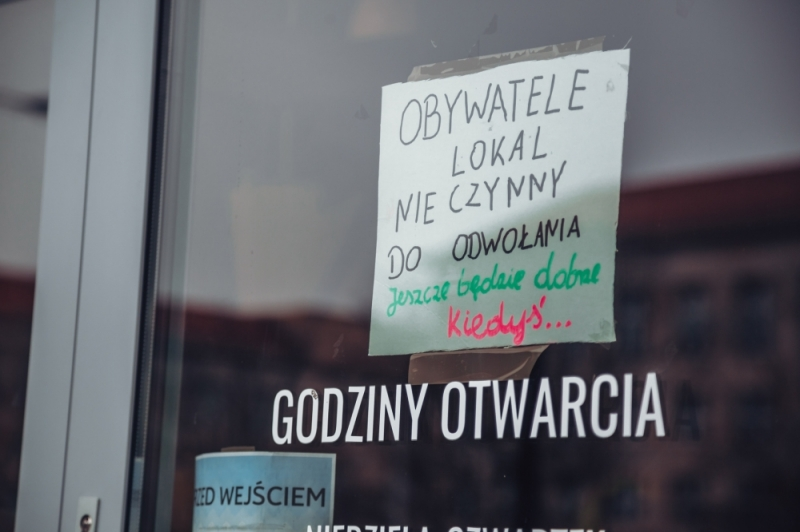 OBYWATELE
LOKAL
NIE CZYNNY
DO ODWOŁANIA
Jeszcze będzie dobrze
Kiedyś...
GODZINY OTWARCIA
WEJŚCIEM
NIEDZIELA-CZWARTEK